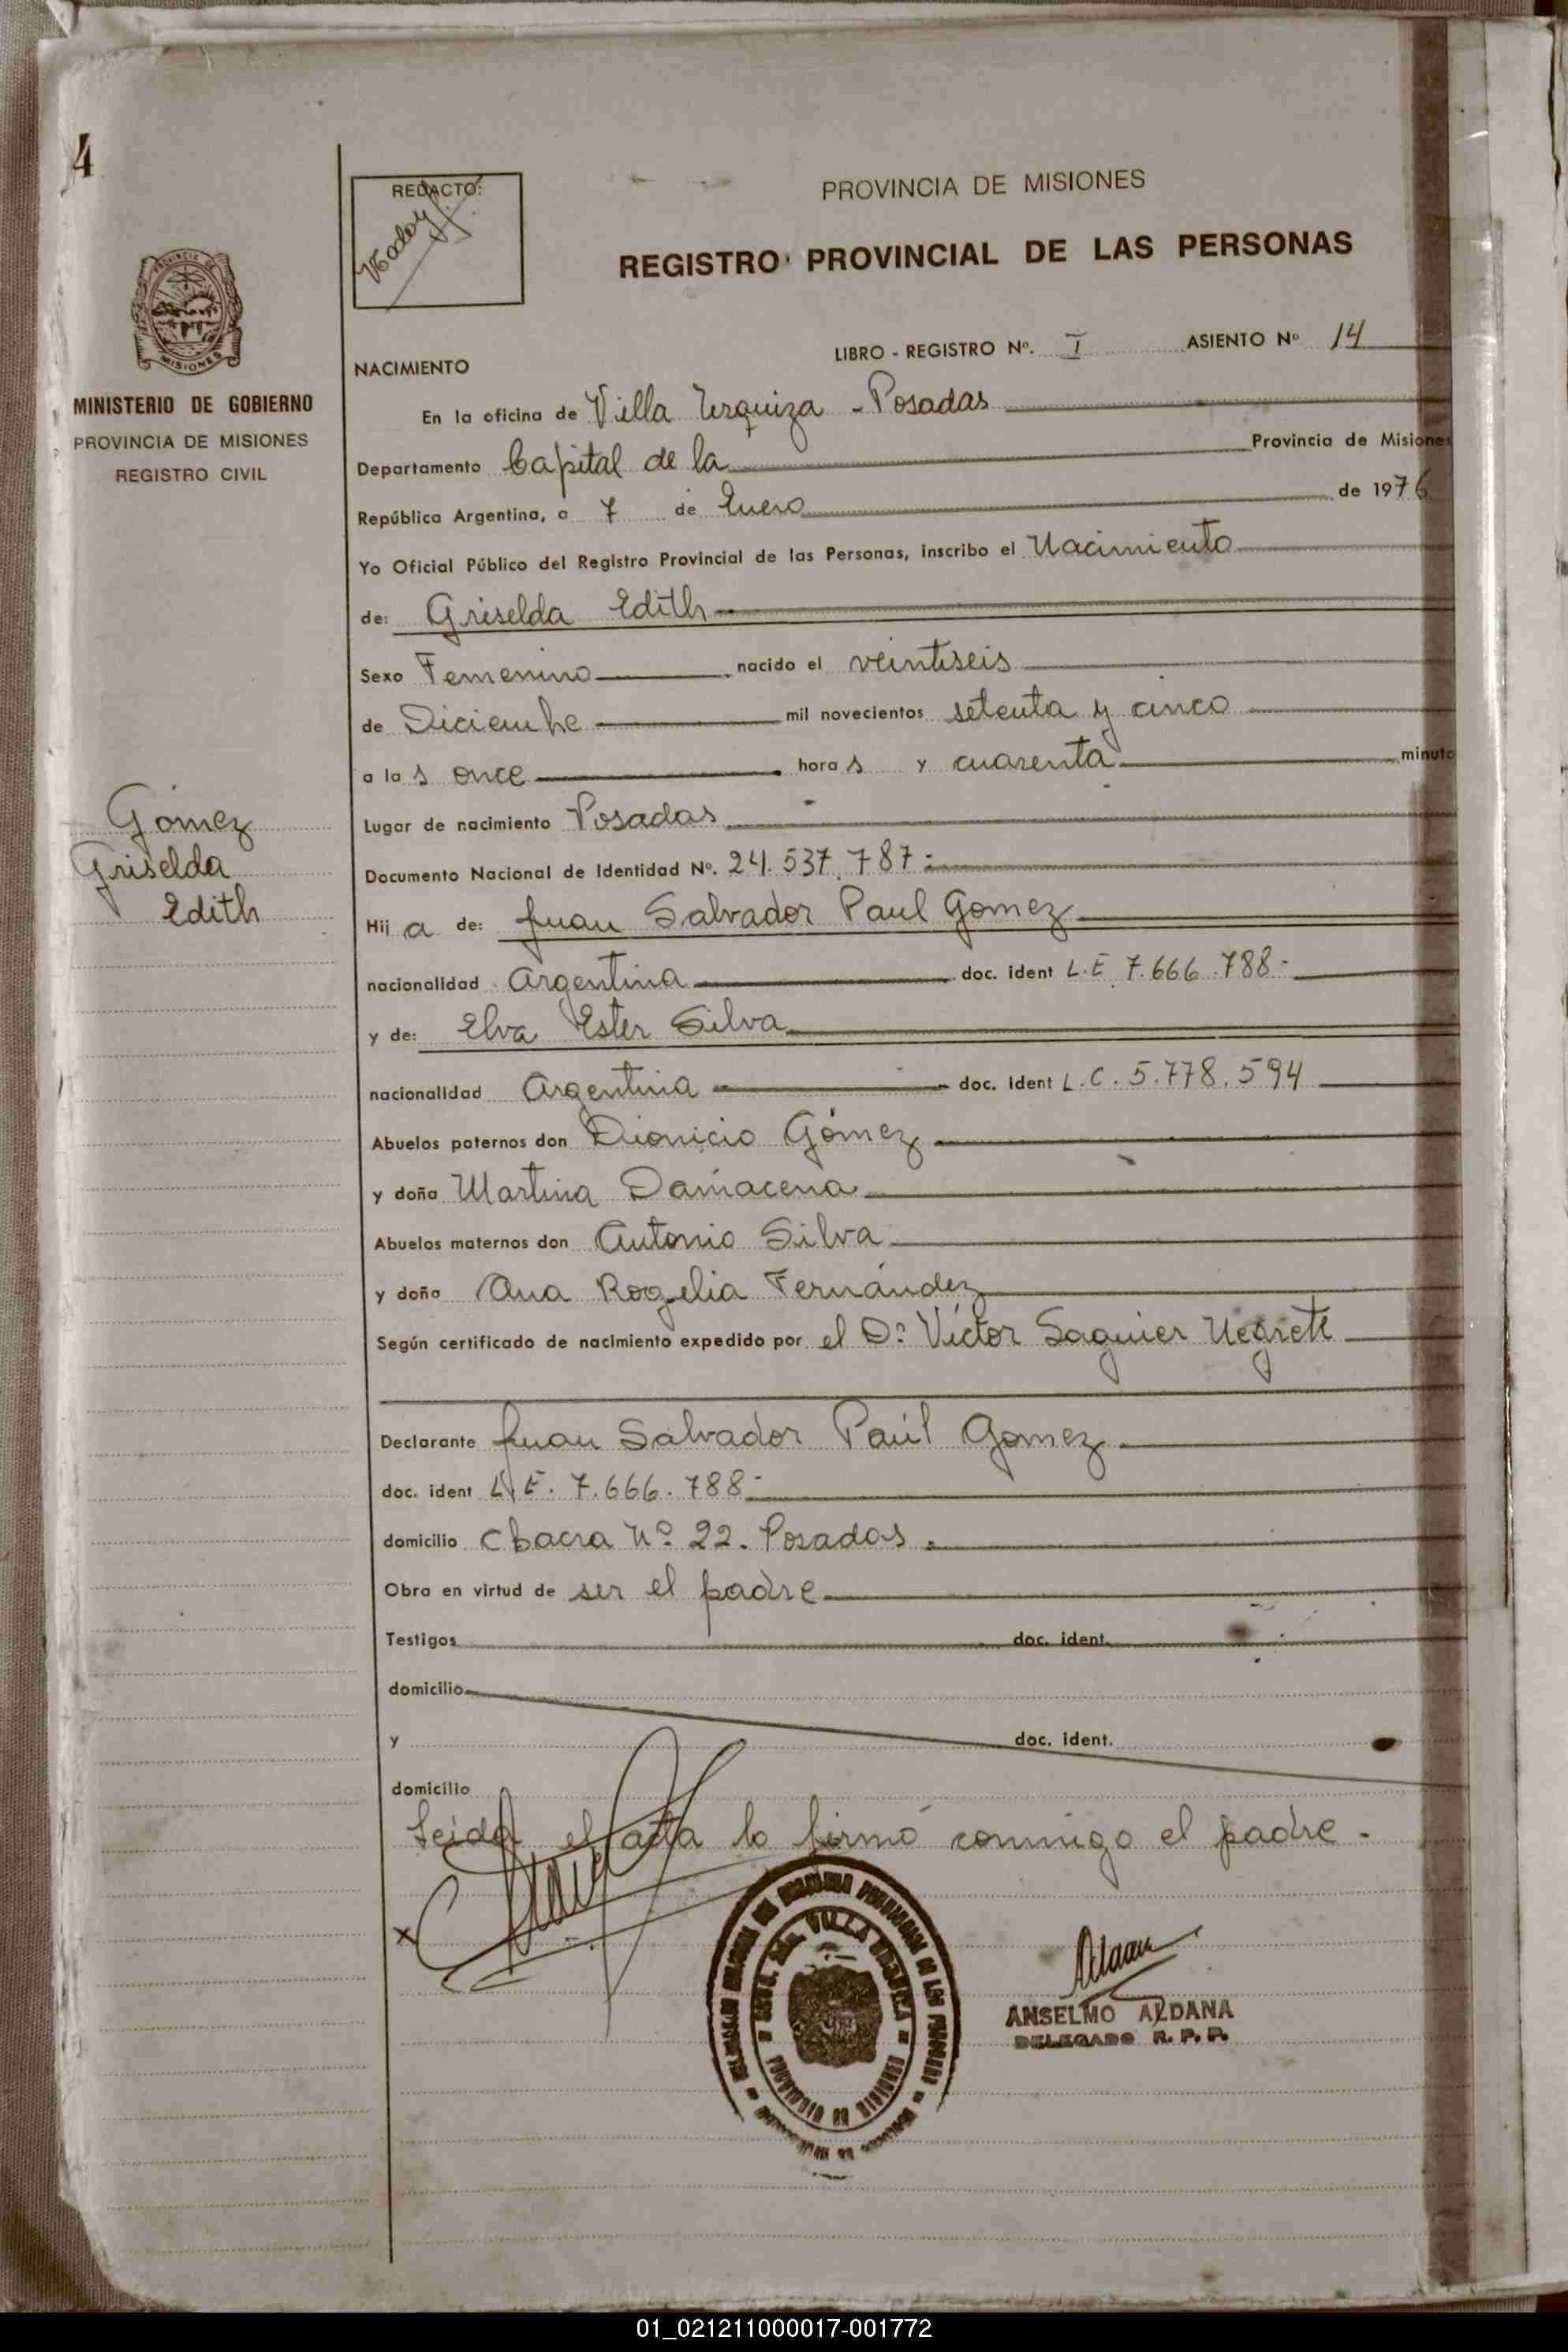 4
REDACTO:
PROVINCIA DE MISIONES
REGISTRO PROVINCIAL DE LAS PERSONAS
PROVINCIA DE
MISIONES
MINISTERIO DE GOBIERNO
PROVINCIA DE MISIONES
REGISTRO CIVIL
LIBRO - REGISTRO Nº. I ASIENTO Nº 14
NACIMIENTO
En la oficina de Villa Urquiza - Posadas
Departamento Capital de la Provincia de Misiones
República Argentina, a 7 de Enero de 1976
Yo Oficial Público del Registro Provincial de las Personas, inscribo el Nacimiento
de: Griselda Edith
Sexo Femenino nacido el veintiseis
de Diciembre mil novecientos setenta y cinco
a las once horas y cuarenta minuto
Lugar de nacimiento Posadas
Gómez
Griselda
Edith
Documento Nacional de Identidad Nº. 24.537.787
Hija de: Juan Salvador Paul Gomez
nacionalidad Argentina doc. ident L.E 7.666.788-
y de: Elva Ester Silva
nacionalidad Argentina doc. Ident L.C. 5.778.594
Abuelos paternos don Dionicio Gómez
y doña Martina Damacena
Abuelos maternos don Antonio Silva
y doña Ana Rogelia Fernández
Según certificado de nacimiento expedido por el Dr. Víctor Saguier Negrete
Declarante Juan Salvador Paúl Gomez
doc. ident L.E. 7.666.788-
domicilio Chacra Nº 22. Posadas.
Obra en virtud de ser el padre
Testigos doc. ident.
domicilio
y doc. ident.
domicilio
Leida el acta lo firmó conmigo el padre.
x
VILLA URQUIZA
ANSELMO ALDANA
DELEGADO R. P. P.
01_021211000017-001772